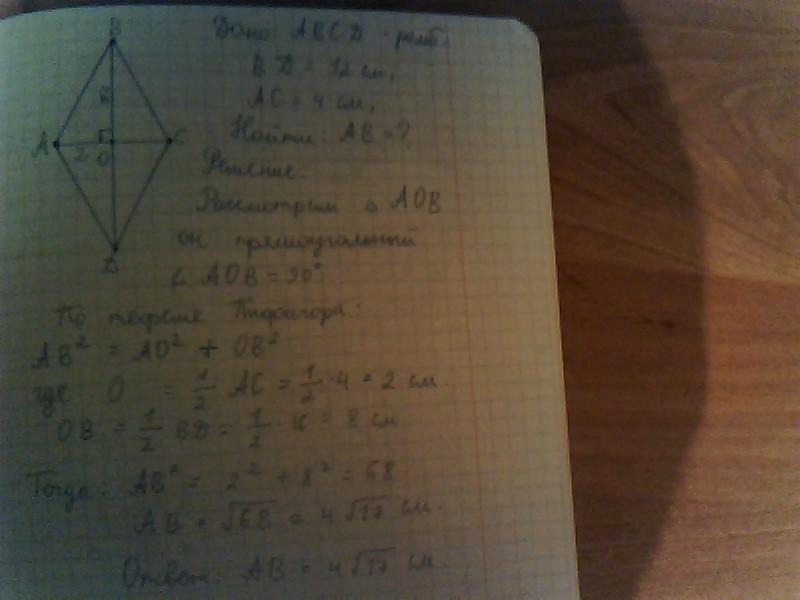 B
Дано: ABCD - ромб.
BD = 12 см,
AC = 4 см,
Найти: AB = ?
A 2 O C
8
Решение.
Рассмотрим △ AOB
он прямоугольный
D
∠ AOB = 90°
По теореме Пифагора:
AB² = AO² + OB²
где O = 1/2 AC = 1/2 · 4 = 2 см.
OB = 1/2 BD = 1/2 · 16 = 8 см
Тогда: AB² = 2² + 8² = 68
AB = √68 = 4√17 см.
Ответ: AB = 4√17 см.